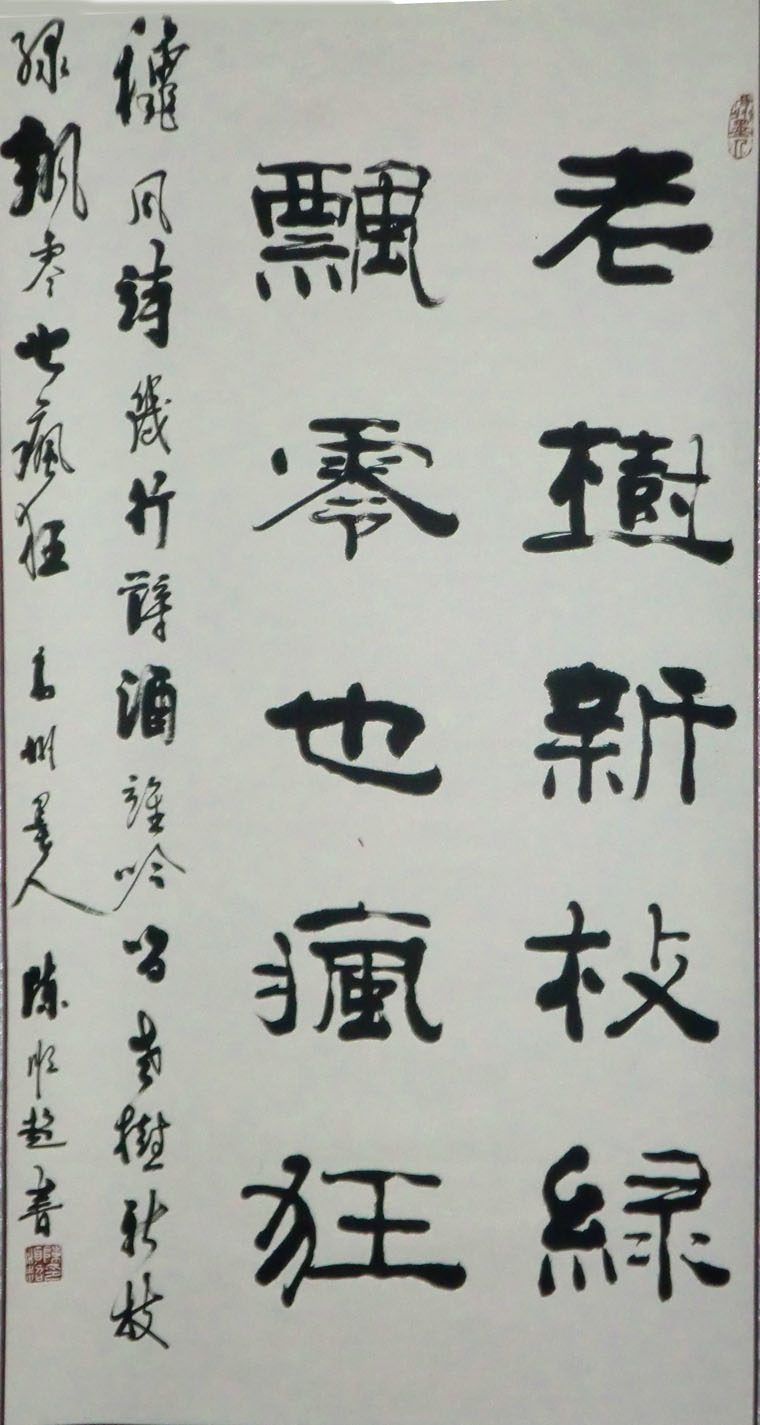 老樹新枝綠
飄零也瘋狂
风詩幾行酒誰吟唱老樹新枝
綠飄零也瘋狂 高州墨人 陳順超書